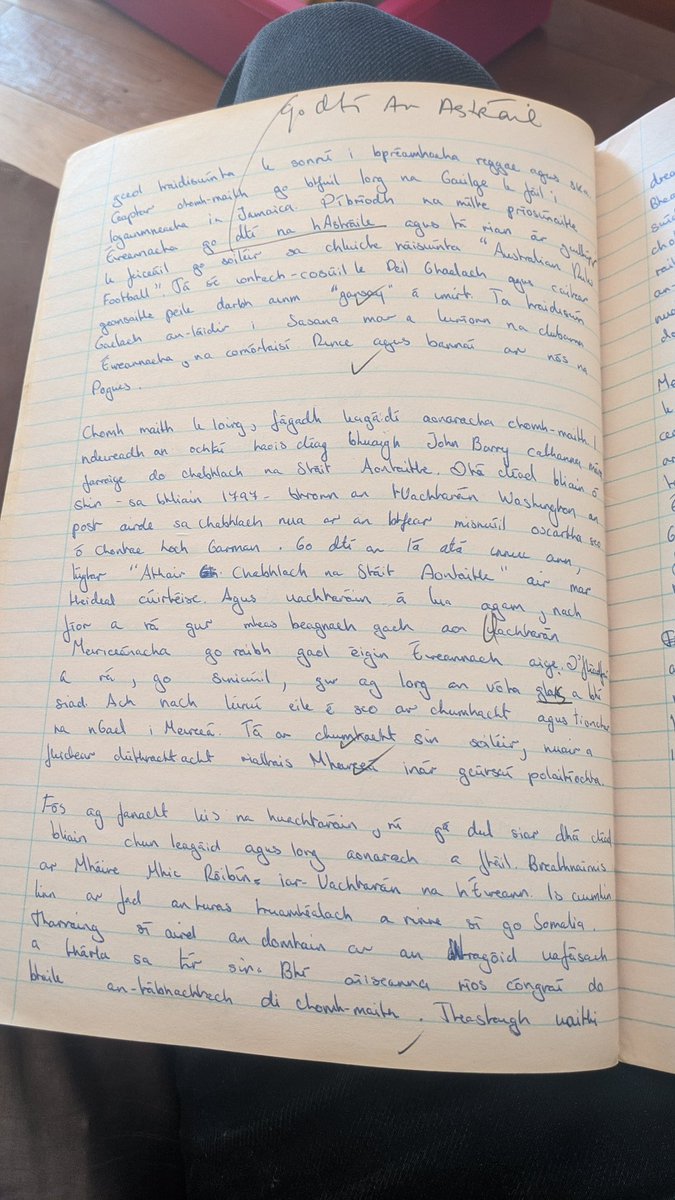 go dtí An Astráil
ceol traidisiúnta le sonrú i bpréamhacha reggae agus ska.
Ceaptar chomh-maith go bhfuil lorg na Gailge le fáil i
logainmneacha in Jamaica. Díbríodh na mílte príosúnaithe
Éireannacha go dtí na hAstráile agus tá rian ár
le feiceáil go soiléir sa chluiche náisiúnta "Australian Rules
Football". Tá sé iontach-cosúil le Peil Ghaelach agus caitear
geansaithe peile darbh ainm "gansay" á imirt. Tá traidisiún
Gaelach an-láidir i Sasana mar a léiríonn na clubanna
Éireannacha, na comórtaisí Rince agus bannaí ar nós na
Pogues.
Chomh maith le loirg, fágadh leagáidí aonaracha chomh-maith. I
ndeireadh an ochtú haois déag bhuaigh John Barry cathanna móra
farraige do chabhlach na Stáit Aontaithe. Dhá chéad bliain ó
shin - sa bhliain 1797 - bhronn an tUachtarán Washington an
post airde sa chabhlach nua ar an bhfear misniúil oscartha seo
ó Chontae Loch Garman. Go dtí an lá atá inniu ann,
tugtar "Athair Chabhlach na Stáit Aontaithe" air mar
theideal cúirtéise. Agus uachtaráin á lua agam, nach
fíor a rá gur mheas beagnach gach aon Uachtarán
Meiriceánacha go raibh gaol éigin Éireannach aige. D'fhéadfaí
a rá, go siniciúil, gur ag lorg an vóta glas a bhí
siad. Ach nach léiriú eile é seo ar chumhacht agus tionchar
na nGael i Meiriceá. Tá ar chumhacht sin soiléir, nuair a
fuidear dúthrachtacht rialtais Mheiriceá inár gcúrsaí polaitíochta.
Fós ag fanacht leis na huachtaráin, ní gá dul siar dhá chéad
bliain chun leagáid agus lorg aonarach a fháil. Breathnaimis
ar Mháire Mhic Róibín, iar-Uachtarán na hÉireann. Is cuimhin
linn ar fad an turas truamhéalach a rinne sí go Somalia.
Tharraing sí aird an domhain ar an dtragóid uafásach
a thárla sa tír sin. Bhí áiseanna níos cóngraí do
bhaile an-tábhachtach di chomh-maith. Theastaigh uaithi